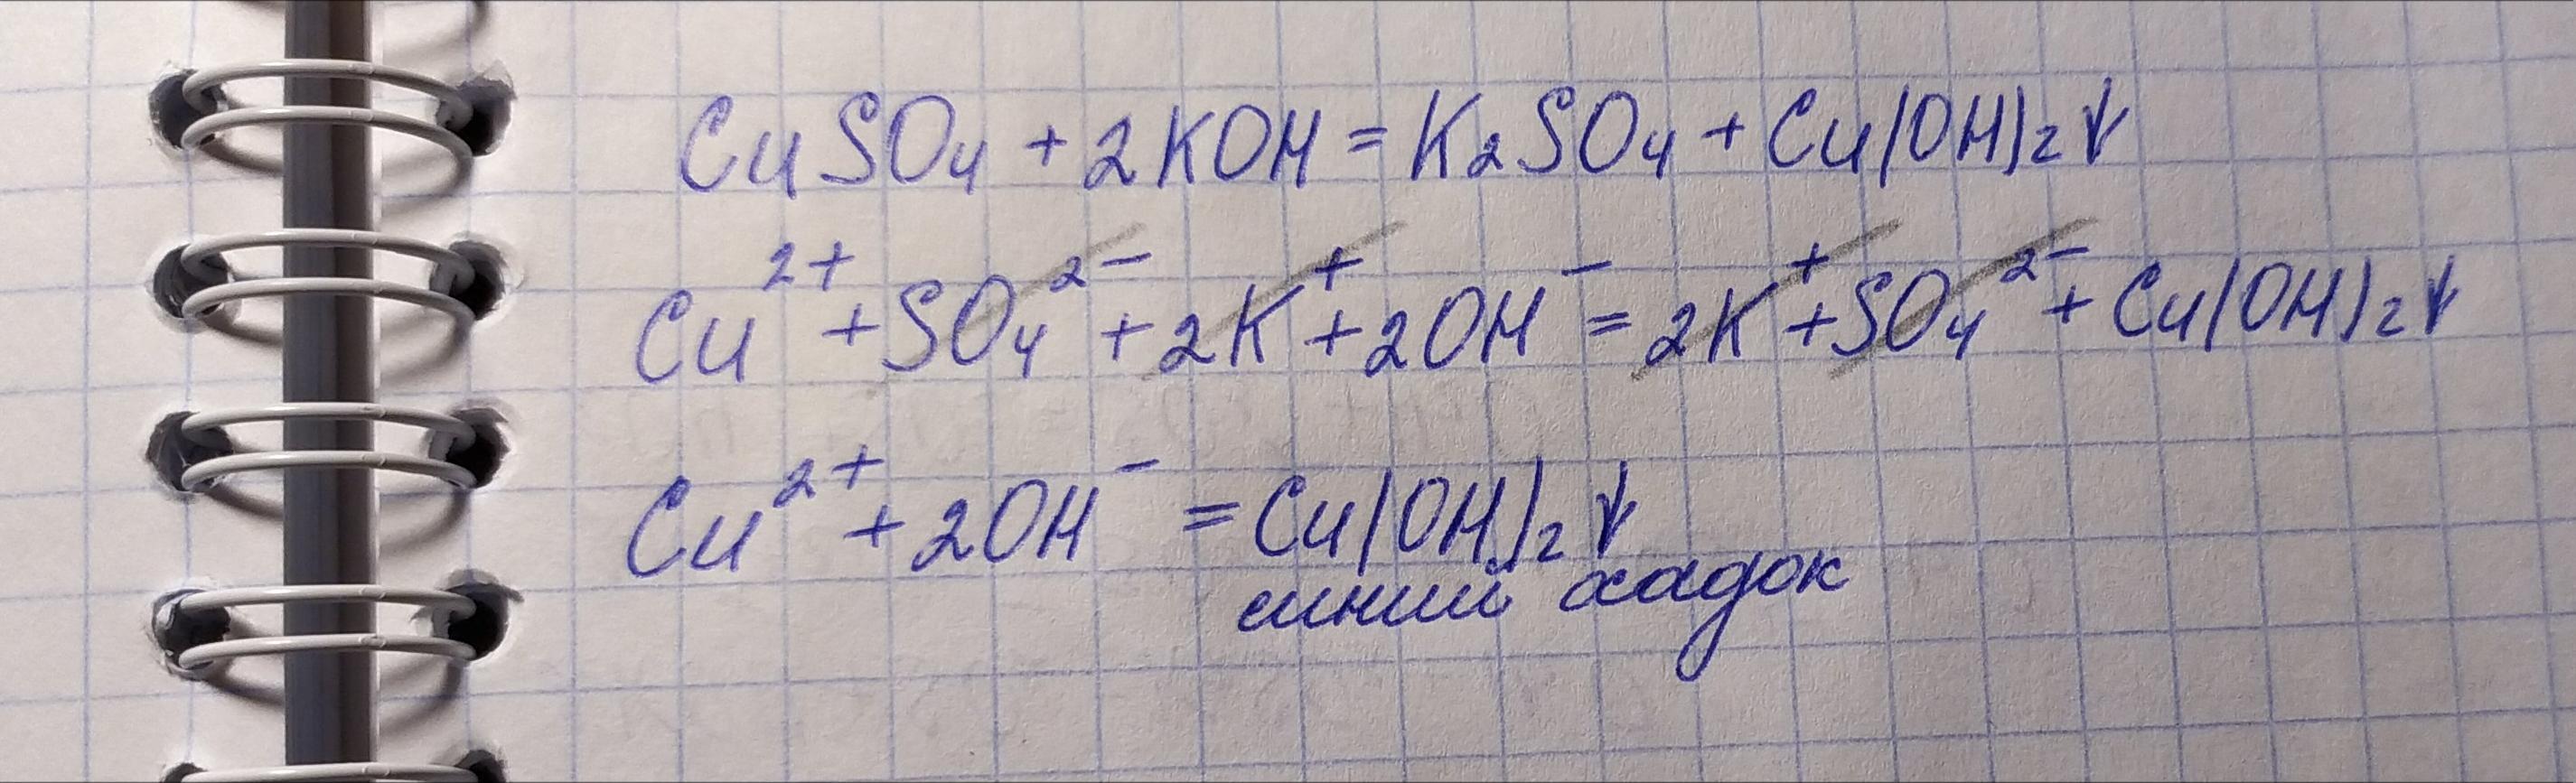 CuSO₄ + 2KOH = K₂SO₄ + Cu(OH)₂↓
Cu²⁺ + SO₄²⁻ + 2K⁺ + 2OH⁻ = 2K⁺ + SO₄²⁻ + Cu(OH)₂↓
Cu²⁺ + 2OH⁻ = Cu(OH)₂↓
синий осадок